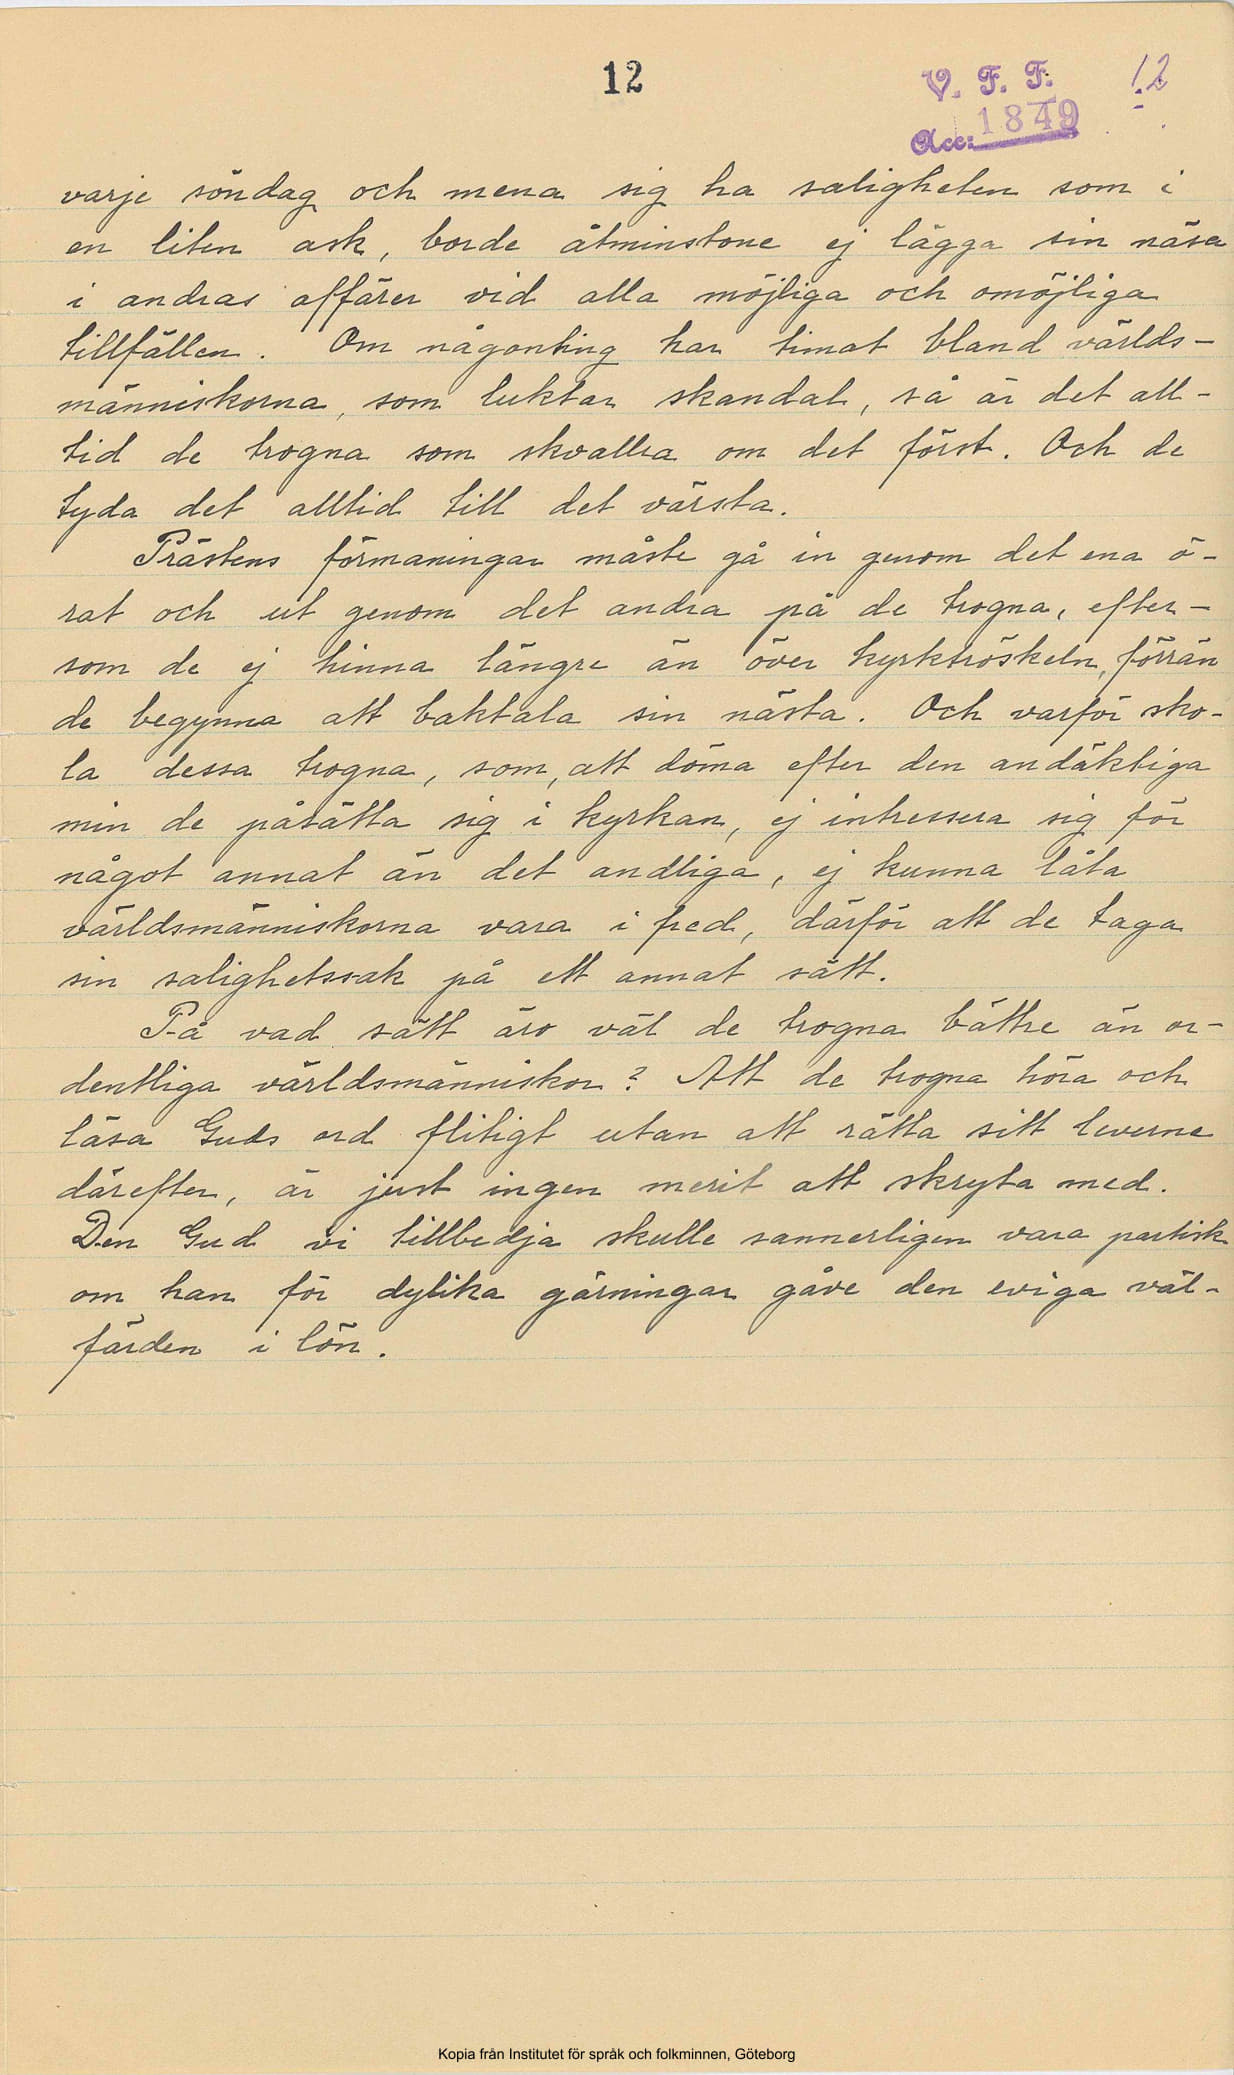 12
V. F. F. 12
Acc: 1849
varje söndag och mena sig ha saligheten som i
en liten ask, borde åtminstone ej lägga sin näsa
i andras affärer vid alla möjliga och omöjliga
tillfällen. Om någonting har timat bland världs-
människorna, som luktar skandal, så är det all-
tid de trogna som skvallra om det först. Och de
tyda det alltid till det värsta.
Prästens förmaningar måste gå in genom det ena ö-
rat och ut genom det andra på de trogna, efter-
som de ej hinna längre än över kyrktröskeln, förrän
de begynna att baktala sin nästa. Och varför sko-
la dessa trogna, som, att döma efter den andäktiga
min de påsätta sig i kyrkan, ej intressera sig för
något annat än det andliga, ej kunna låta
världsmänniskorna vara i fred, därför att de taga
sin salighetssak på ett annat sätt.
På vad sätt äro väl de trogna bättre än or-
dentliga världsmänniskor? Att de trogna höra och
läsa Guds ord flitigt utan att rätta sitt leverne
därefter, är just ingen merit att skryta med.
Den Gud vi tillbedja skulle sannerligen vara partisk
om han för dylika gärningar gåve den eviga väl-
färden i lön.
Kopia från Institutet för språk och folkminnen, Göteborg